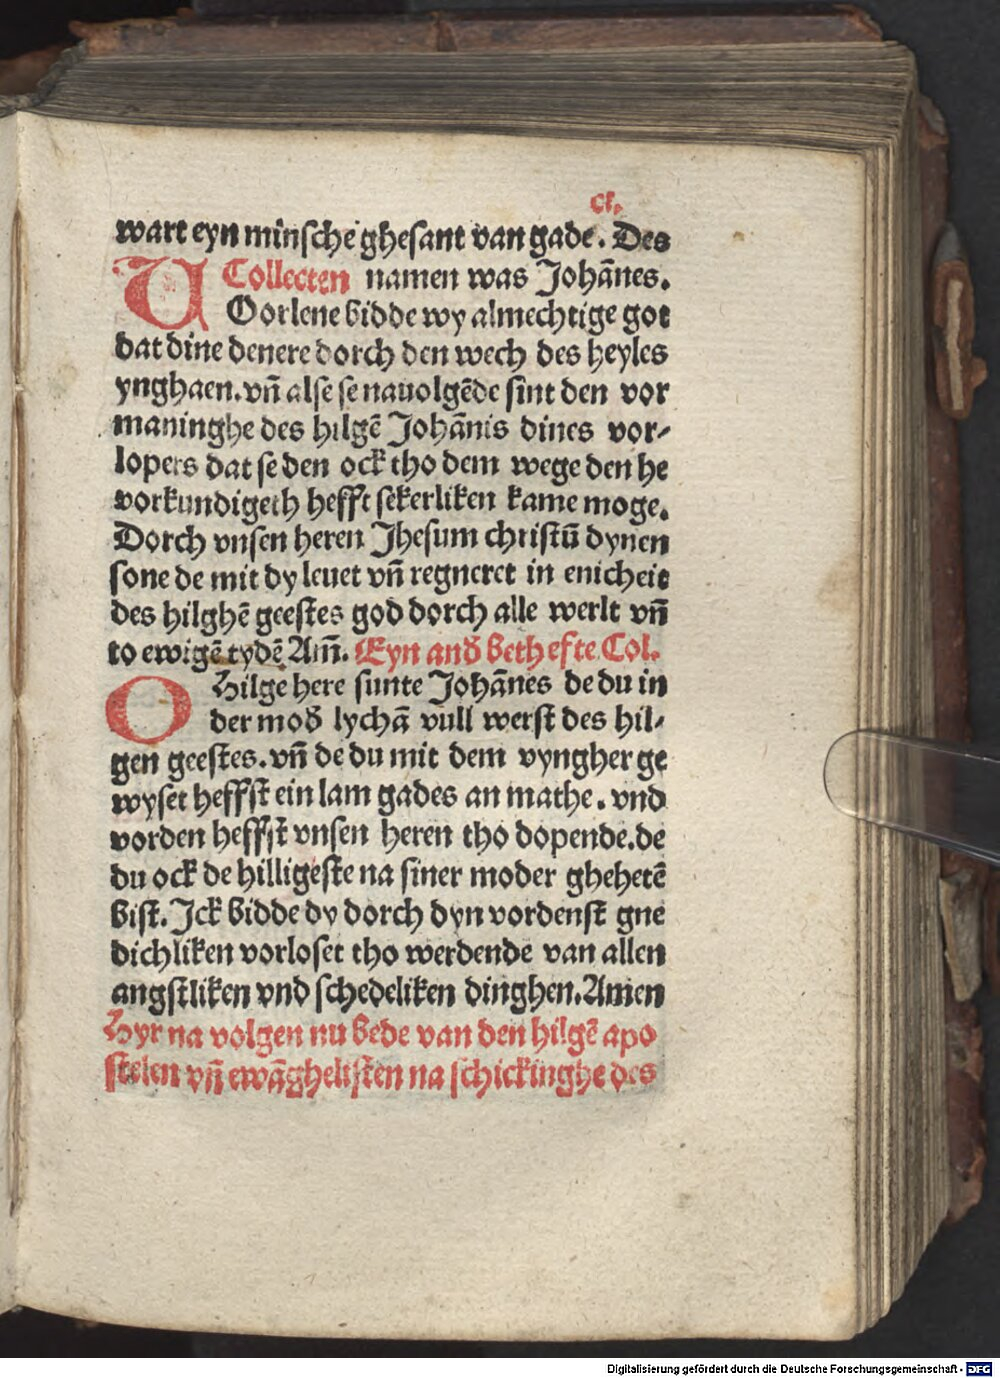 cl.
wart eyn minsche ghesant van gade. Des
Collecten namen was Johānes.
VOorlene bidde wy almechtige got
dat dine denere dorch den wech des heyles
ynghaen. vn̄ alse se nauolgēde sint den vor
maninghe des hilgē Johānis dines vor⸗
lopers dat se den ock tho dem wege den he
vorkundigeth hefft sekerliken kame moge.
Dorch vnsen heren Jhesum christū dynen
sone de mit dy leuet vn̄ regneret in enicheit
des hilghē geestes god dorch alle werlt vn̄
to ewigē tydē Am̄. Eyn and̄ beth efte Col.
O Hilge here sunte Johānes de du in
der mod̄ lychā vull werst des hil⸗
gen geestes. vn̄ de du mit dem vyngher ge
wyset heffst ein lam gades an mathe. vnd
vorden heffst vnsen heren tho dopende. de
du ock de hilligeste na siner moder ghehetē
bist. Jck bidde dy dorch dyn vordenst gne
dichliken vorloset tho werdende van allen
angstliken vnd schedeliken dinghen. Amen
Hyr na volgen nu bede van den hilgē apo
stelen vn̄ ewāghelisten na schickinghe des
Digitalisierung gefördert durch die Deutsche Forschungsgemeinschaft - DFG